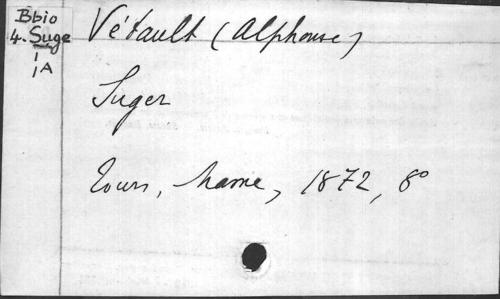 Bbio
4. Suge
1
1A
Vétault (Alphonse)
Suger
Tours, Mame, 1872, 8°